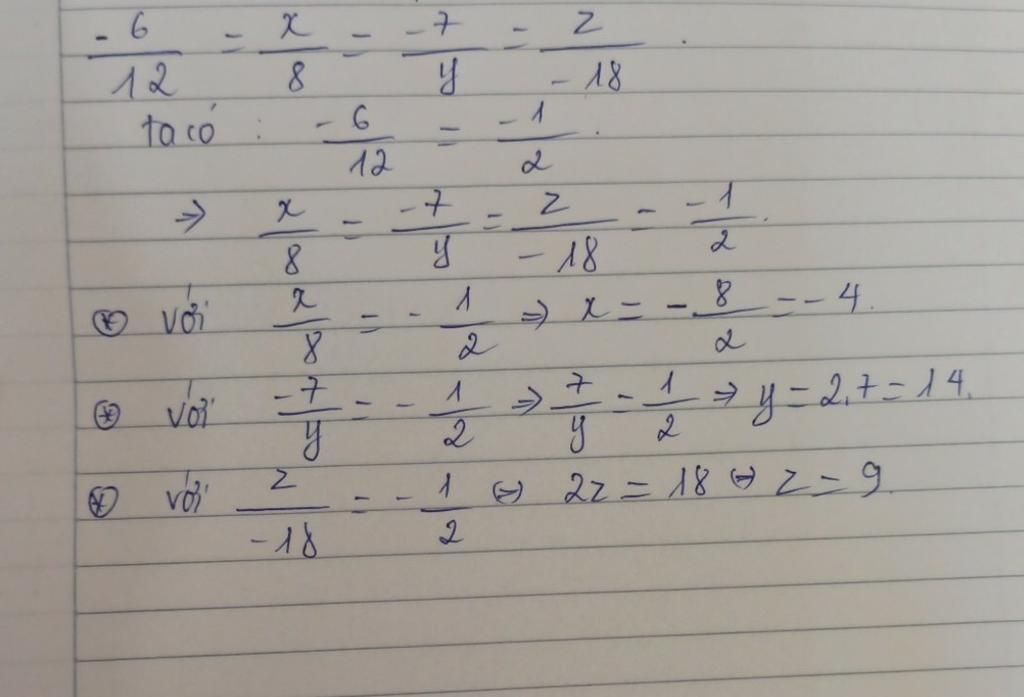 -6/12 = x/8 = -7/y = z/-18.
ta có : -6/12 = -1/2.
=> x/8 = -7/y = z/-18 = -1/2.
⊛ với x/8 = - 1/2 => x = - 8/2 = - 4.
⊛ với -7/y = - 1/2 => 7/y = 1/2 => y = 2.7 = 14.
⊛ với z/-18 = - 1/2 <=> 2z = 18 <=> z = 9.